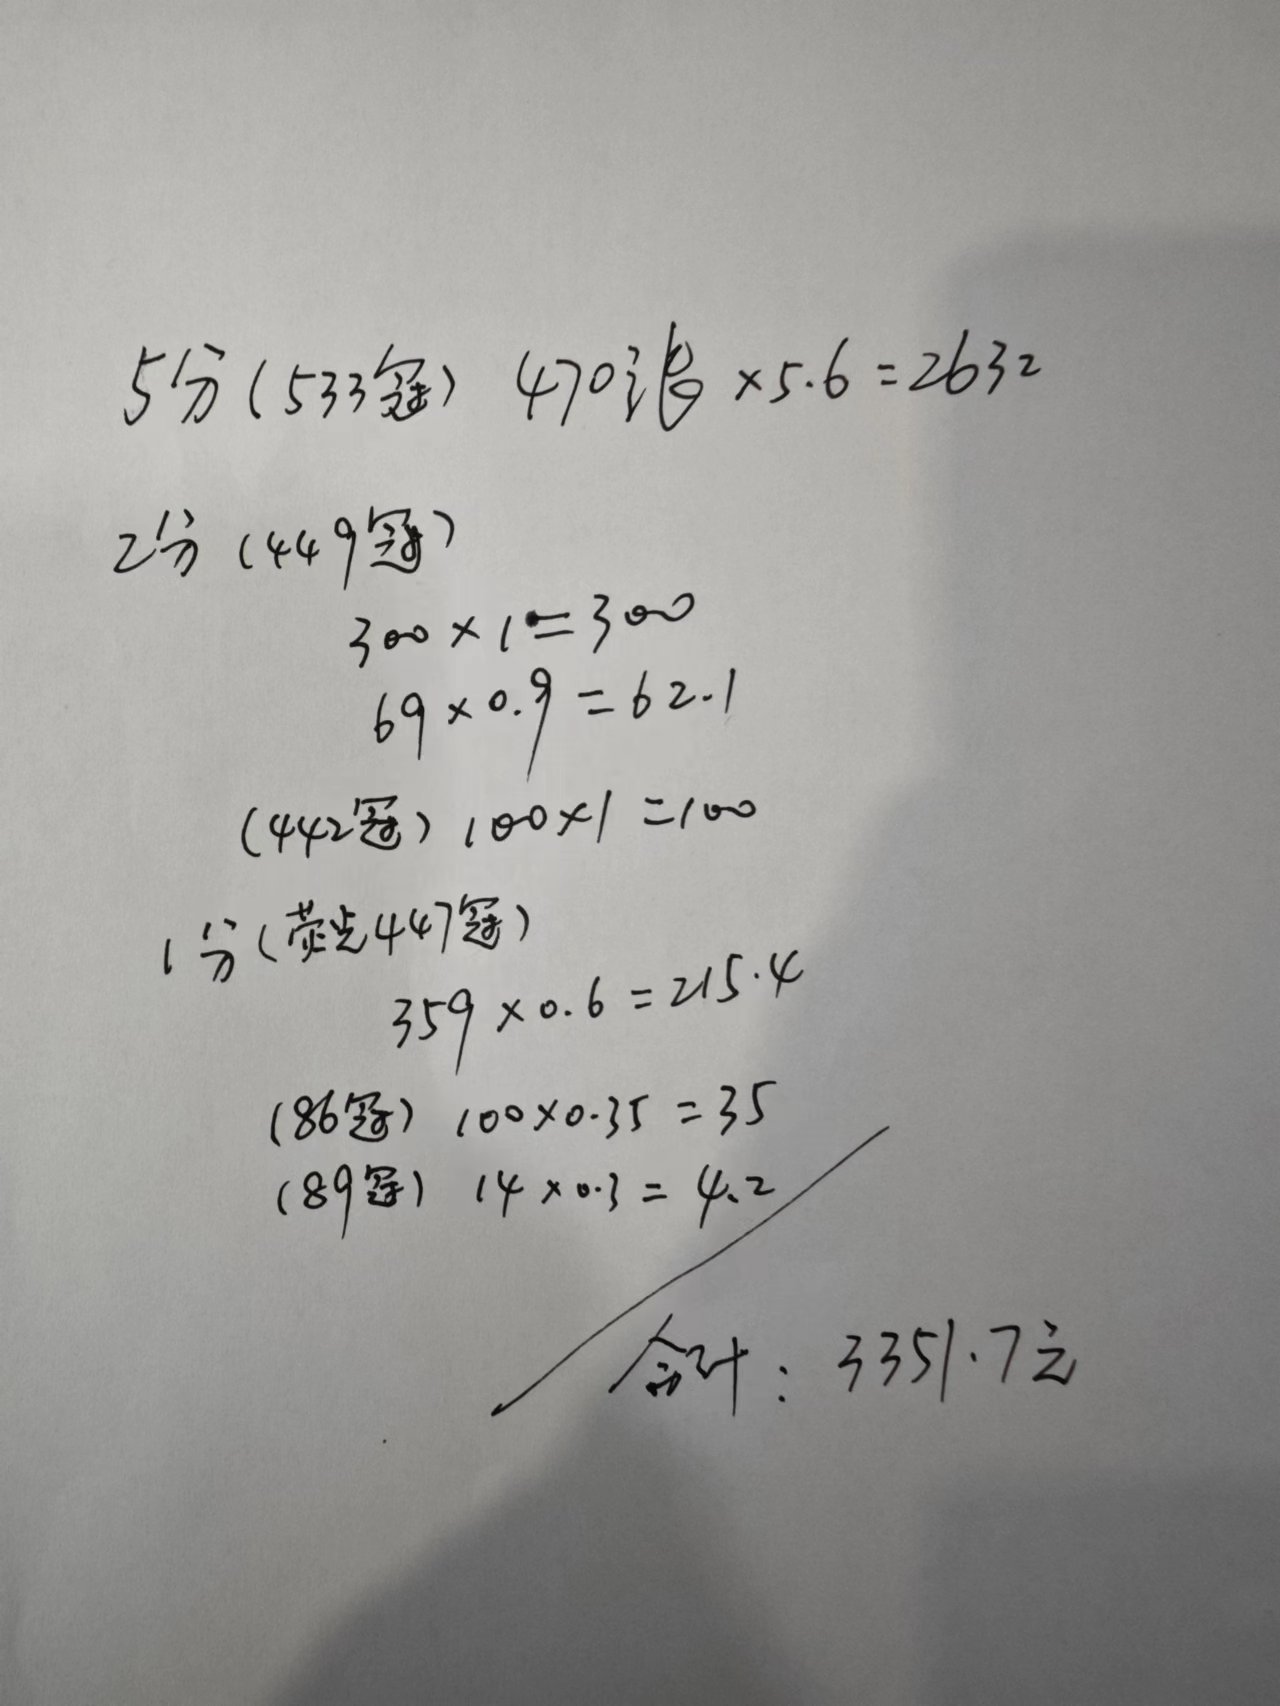 5分(533冠) 470张×5.6=2632
2分(449冠)
300×1=300
69×0.9=62.1
(442冠) 100×1=100
1分(荧光447冠)
359×0.6=215.4
(86冠) 100×0.35=35
(89冠) 14×0.3=4.2
合计:3351.7元